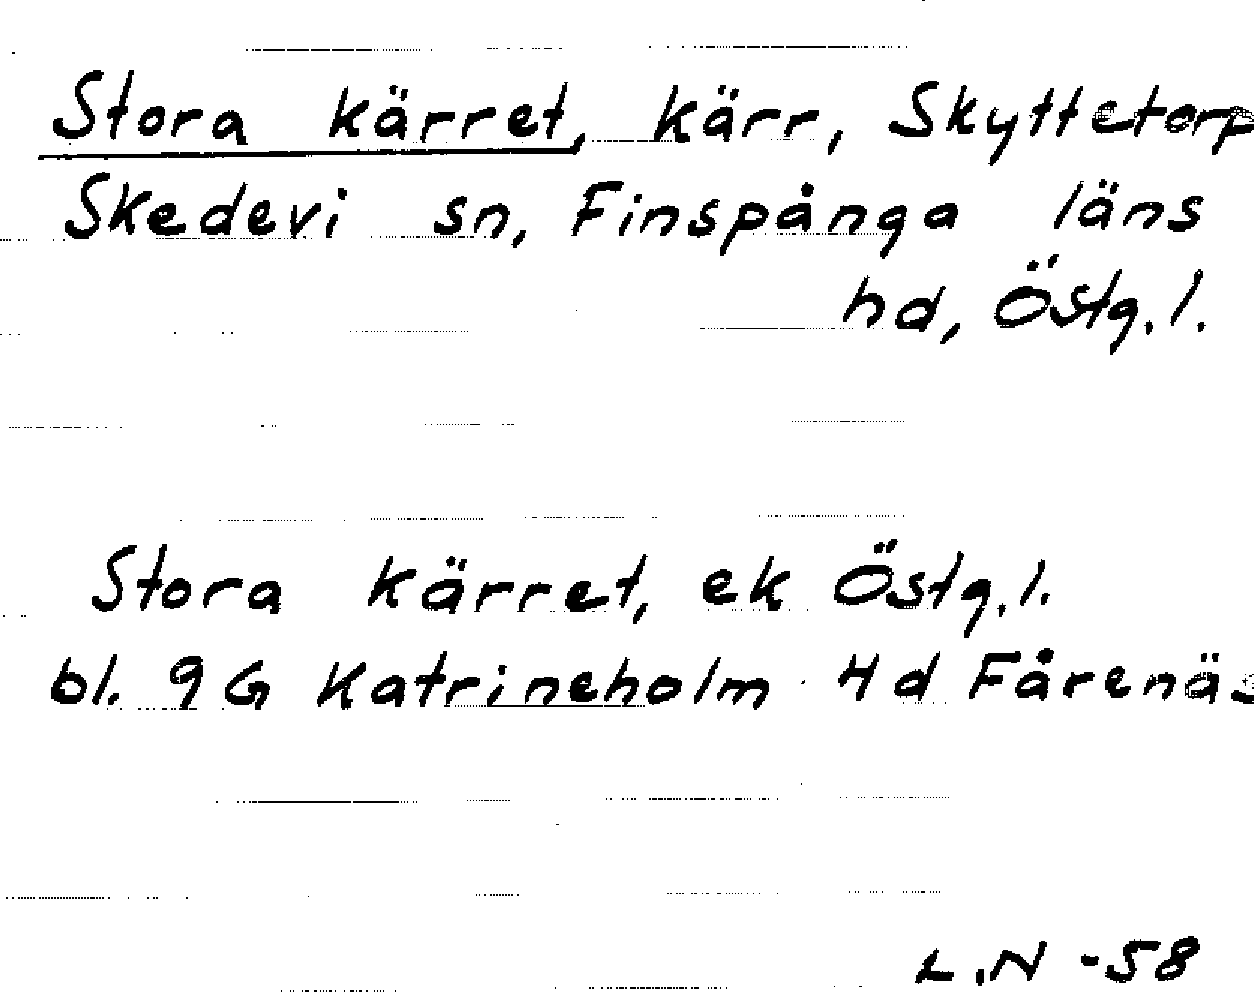 Stora kärret, kärr, Skyttetorp
Skedevi sn, Finspånga läns
hd, Östg. l.
Stora kärret, ek Östg. l.
bl. 9 G Katrineholm 4 d Fårenäs
L.N -58